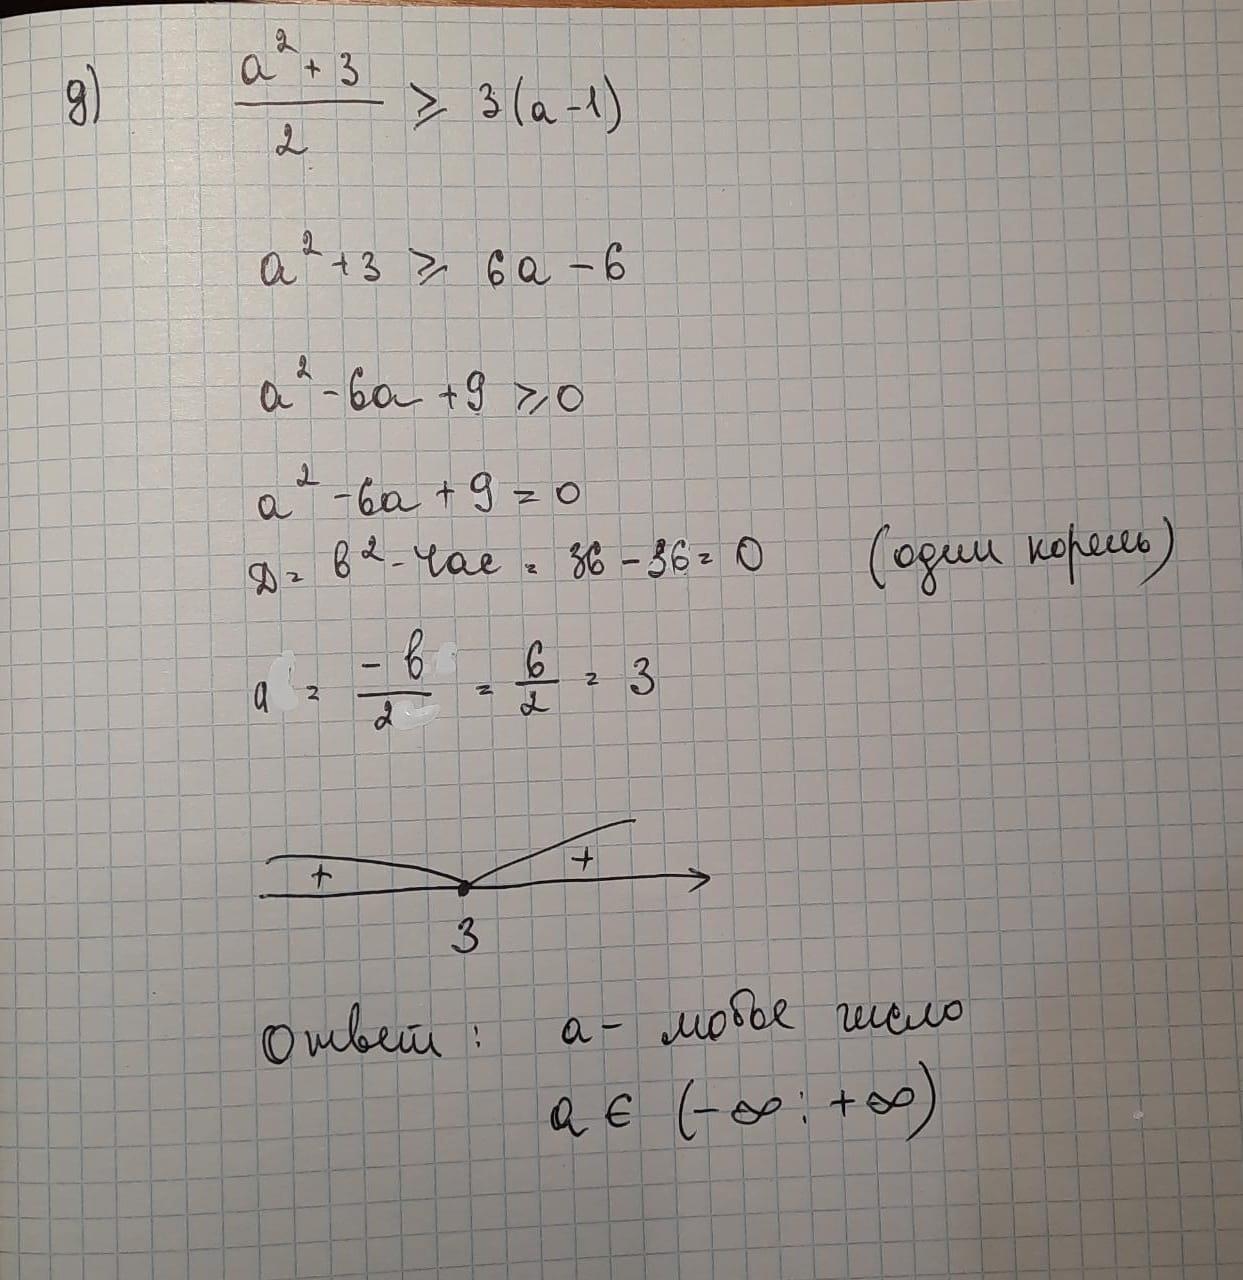 д) a² + 3 / 2 ≥ 3(a - 1)
a² + 3 ≥ 6a - 6
a² - 6a + 9 ≥ 0
a² - 6a + 9 = 0
D = b² - 4ac = 36 - 36 = 0 (один корень)
a = -b / 2 = 6 / 2 = 3
+ +
3
Ответ: a - любое число
a ∈ (-∞; +∞)